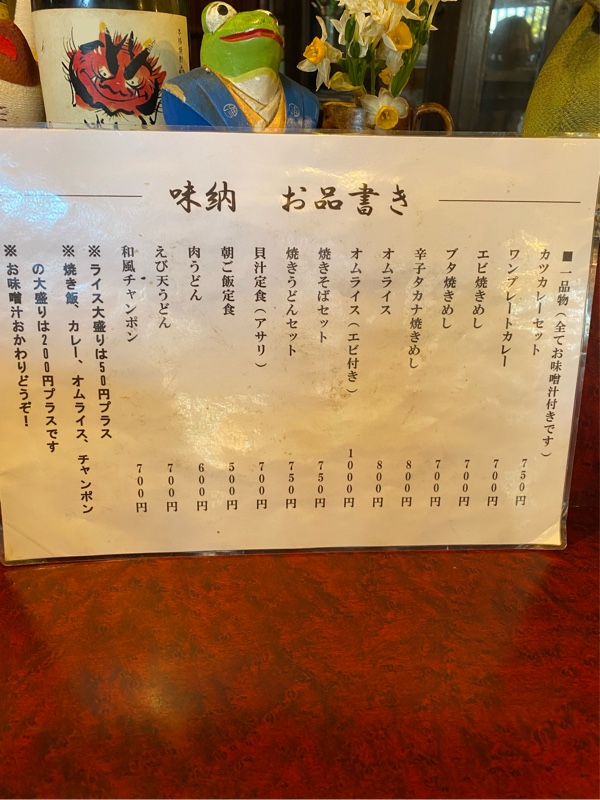 味納 お品書き
■一品物(全てお味噌汁付きです)
カツカレーセット 750円
ワンプレートカレー 700円
エビ焼きめし 700円
ブタ焼きめし 700円
辛子タカナ焼きめし 800円
オムライス 800円
オムライス(エビ付き) 1000円
焼きそばセット 750円
焼きうどんセット 750円
貝汁定食(アサリ) 700円
朝ご飯定食 500円
肉うどん 600円
えび天うどん 700円
和風チャンポン 700円
※ライス大盛りは50円プラス
※焼き飯、カレー、オムライス、チャンポン
の大盛りは200円プラスです
※お味噌汁おかわりどうぞ!